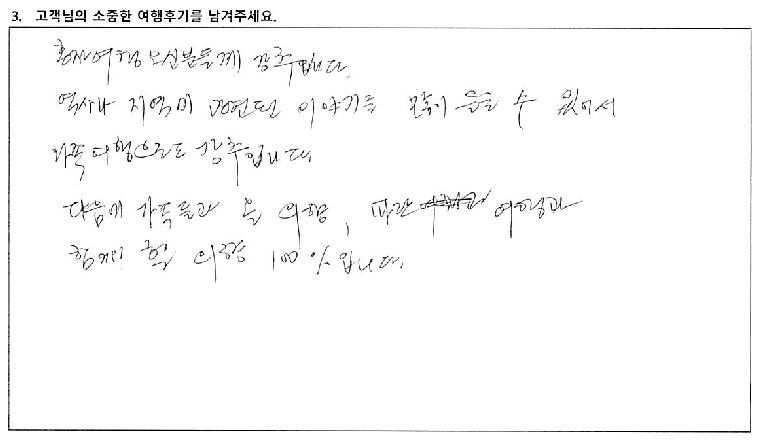 3. 고객님의 소중한 여행후기를 남겨주세요.
혼자여행 오신분들께 강추입니다.
역사나 지역에 관련된 이야기를 많이 들을 수 있어서
가족여행으로도 강추입니다
다음에 가족들과 올 의향, 파란 여행과
함께 할 의향 100%입니다.